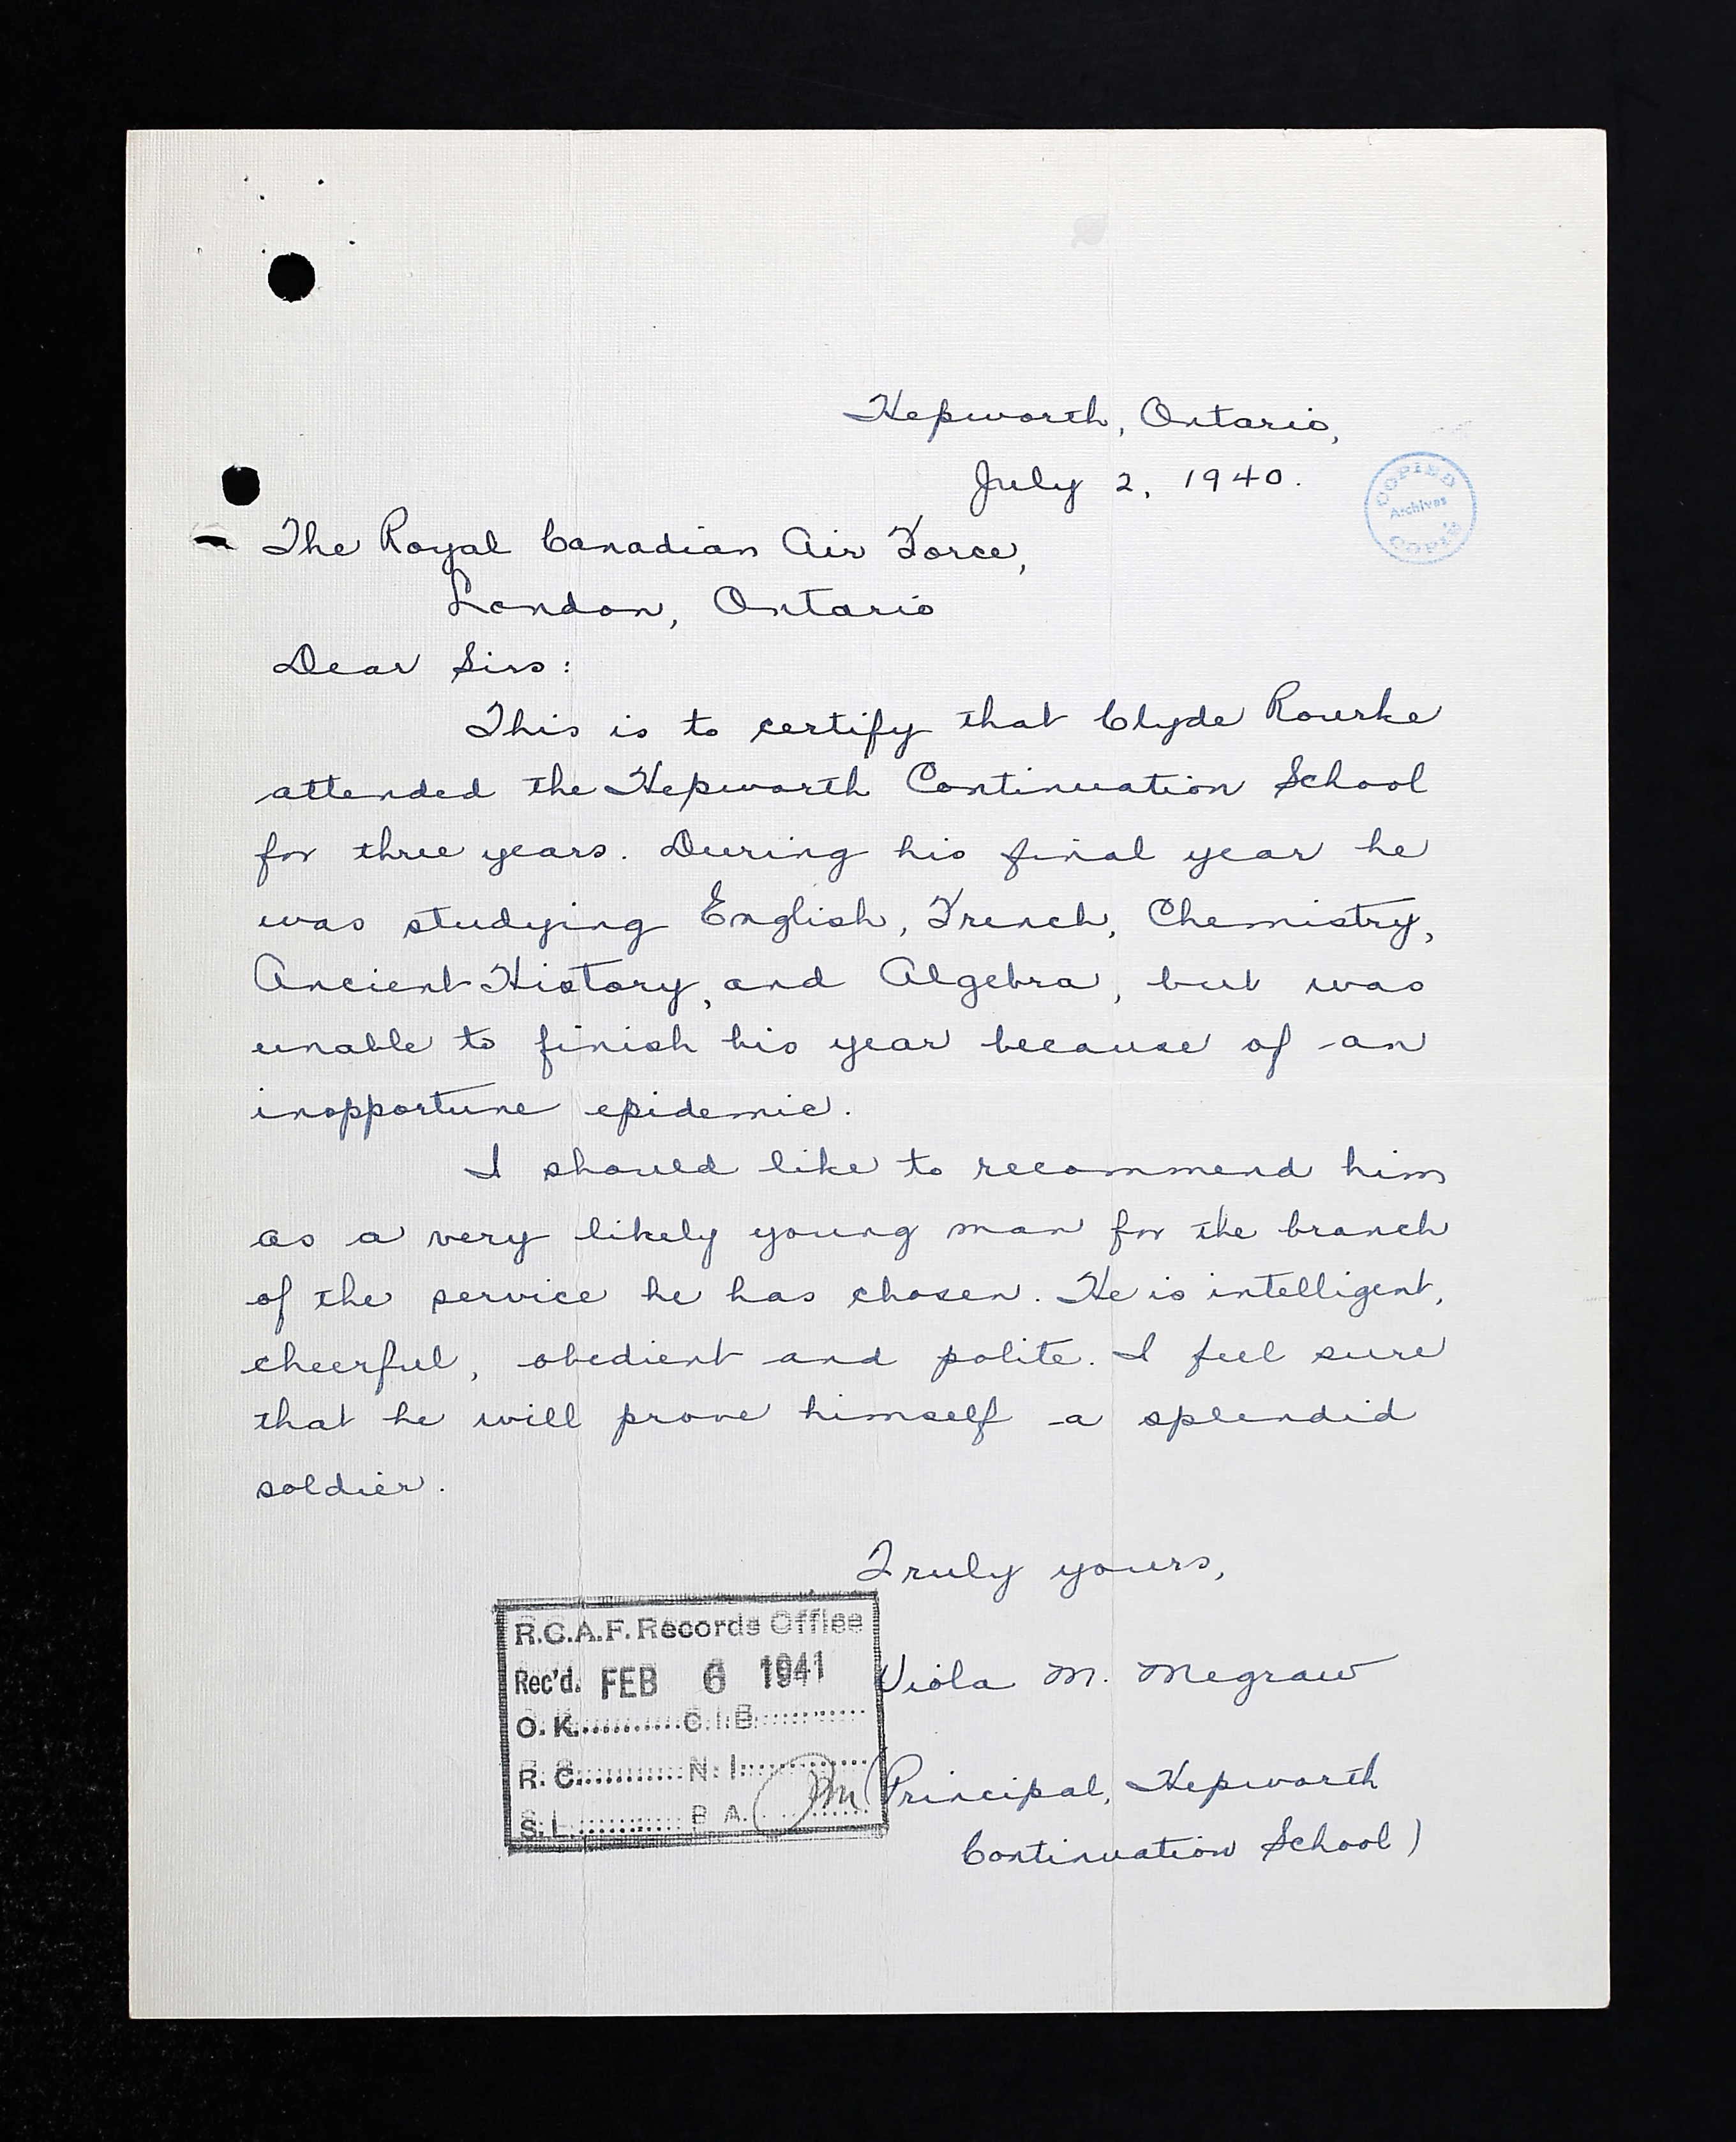 Hepworth, Ontario,
July 2, 1940.
COPIED
Archives
COPIÉ
The Royal Canadian Air Force,
London, Ontario
Dear Sirs:
This is to certify that Clyde Rourke
attended the Hepworth Continuation School
for three years. During his final year he
was studying English, French, Chemistry,
Ancient History, and Algebra, but was
unable to finish his year because of an
inopportune epidemic.
I should like to recommend him
as a very likely young man for the branch
of the service he has chosen. He is intelligent,
cheerful, obedient and polite. I feel sure
that he will prove himself a splendid
soldier.
Truly yours,
Viola M. Megraw
(Principal, Hepworth
Continuation School)
R.C.A.F. Records Office
Rec'd. FEB 6 1941
O. K...........C.I.B...........
R. C...........N. I...........
S. L...........P A...........